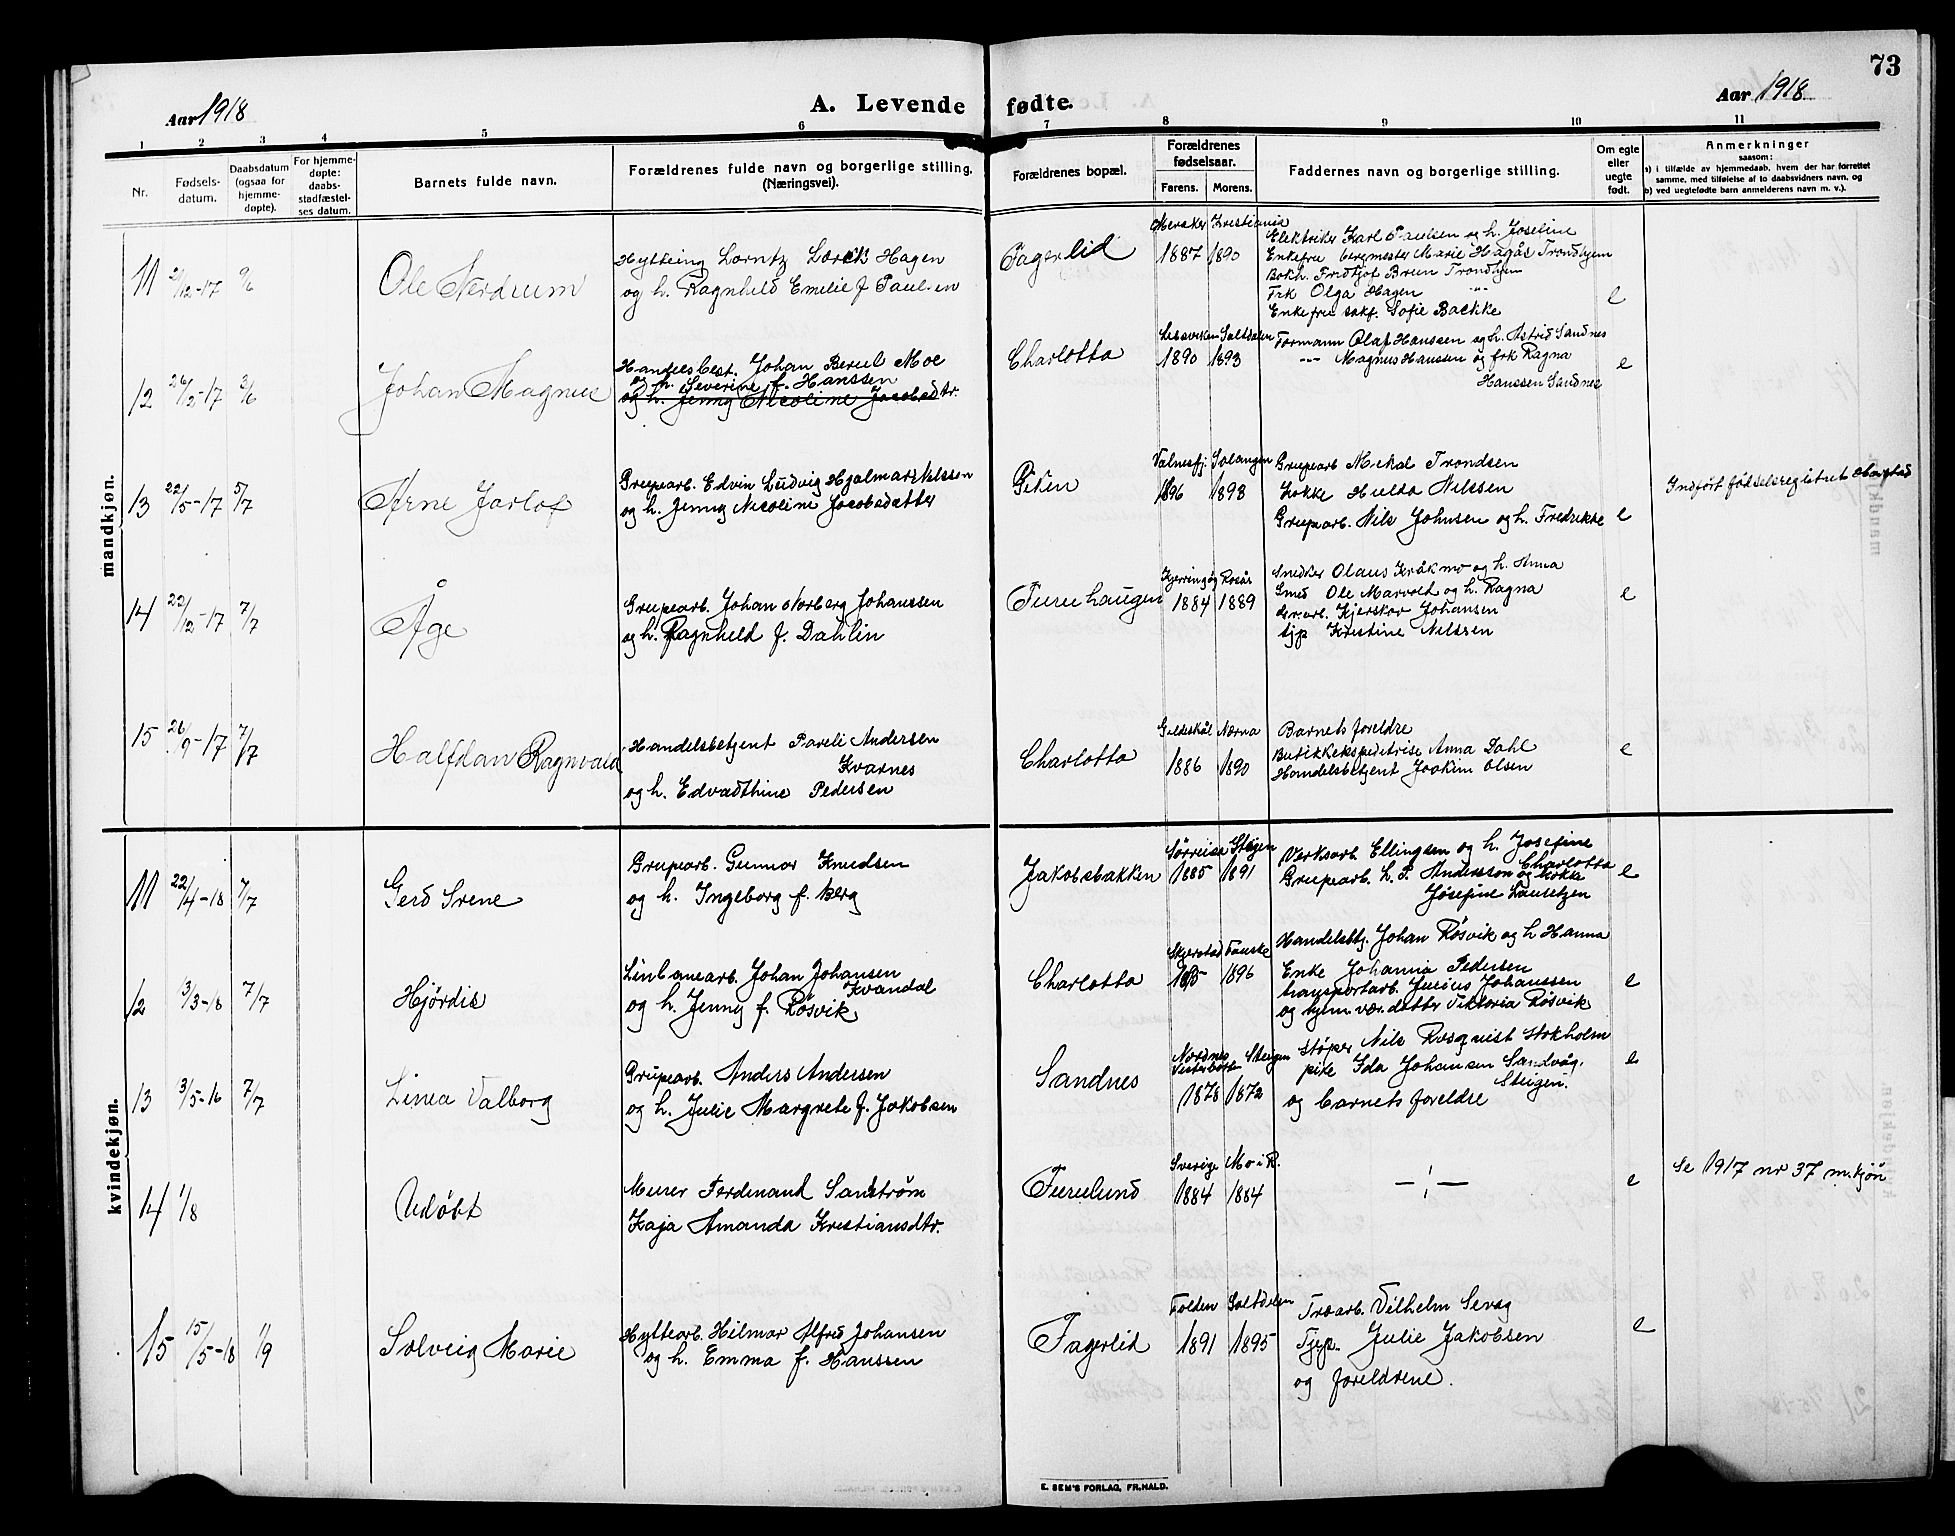 73
Aar 1918
A. Levende fødte.
Aar 1918
1 2 3 4 5 6 7 8 9 10 11
Nr.
Fødsels-
datum.
Daabsdatum
(ogsaa for
hjemme-
døpte).
For hjemme-
døpte:
daabs-
stadfæstel-
ses datum.
Barnets fulde navn.
Forældrenes fulde navn og borgerlige stilling.
(Næringsvei).
Forældrenes bopæl.
Forældrenes
fødselsaar.
Farens. Morens.
Faddernes navn og borgerlige stilling.
Om egte
eller
uegte
født.
Anmerkninger
saasom:
a) i tilfælde av hjemmedaab, hvem der har forrettet
samme, med tilføielse af to daabsvidners navn, og
b) ved uegtefødte barn anmelderens navn m. v.).
mandkjøn.
11 2/12-17 9/6
Ole Nerdrum
Hytteing Lorntz Lorck Hagen
og h. Ragnhild Emelie f Paulsen
Fagerlid
Meraker Kristiania
1887 1890
Elektriker Karl Paulsen og h. Josefine
Enkefru bergmester Marie Hagås Trondhjem
Bokh. Fridtjof Bruun Trondhjem
Frk Olga Hagen "
Enkefru sakf. Sofie Bække
e
12 26/12-17 3/6
Johan Magnus
Handelsbest. Johan Berul Moe
og h. Severine f. Hanssen
og h. Jenny Nicoline Jacobsdtr.
Charlotta
Leksviken Saltdalen
1890 1893
Formann Olaf Hanssen og h. Astrid Sandnes
"" Magnus Hanssen og frk Ragna
Hanssen Sandnes
e
13 22/5-17 5/7
Arne Jarlof
Grupearb. Edvin Ludvig Hjalmar Nilssen
og h. Jenny Nicoline Jacobsdatter
Giken
Valnesfj. Salangen
1896 1898
Grupearb Mikal Trondsen
Kokke Hulda Nilssen
Grupearb. Nils Johnsen og h. Fredrikke
e
Indført fødselsregistret
14 22/12-17 7/7
Åge
Grupearb. Johan Norberg Johanssen
og h. Ragnhild f. Dahlin
Furuhaugen
Kjerringøy
1884 1889
Snedker Olaus Kråkmo og h. Anna
Smed Ole Marvold og h. Ragna
Kjerskov Johansen
tjp Kristine Nilssen
e
15 26/9-17 7/7
Halfdan Ragnvald
Handelsbetjent Pareli Andersen
Kvarnes
og h. Edvardthine Pedersen
Charlotta
Gildeskål Nærna
1886 1890
Barnets foreldre
Butikkekspeditrise Anna Dahl
Handelsbetjent Joakim Olsen
e
kvindekjøn.
11 22/4-18 7/7
Gerd Irene
Grupearb. Gunnar Knudsen
og h. Ingeborg f. Berg
Jakobsbakken
Sørreisa Steigen
1885 1891
Verksarb. Ellingsen og h. Josefine
Charlotta
Grupearb. L. P. Andersson og kokke
Josefine Lauritzen
e
12 3/3-18 7/7
Hjørdis
Linbanearb. Johan Johansen
Kvandal
og h. Jenny f. Røsvik
Charlotta
Skjerstad Fauske
1896
Handelsbtj. Johan Røsvik og h Hanna
Enke Johanna Pedersen
transportarb. Julius Johanssen
og hjem. vær. datter Viktoria Røsvik
e
13 3/5-16 7/7
Linea Valborg
Grupearb. Anders Andersen
og h. Julie Margrete f. Jakobsen
Sandnes
Nordnes Steigen
Vesterbott
1878 1872
støper Nils Rosqvist Stokholm
pike Ida Johansen Sandvåg,
Steigen.
og barnets foreldre
e
14 1/8
Udøbt
Murer Ferdinand Sandstrøm
Kaja Amanda Kristiansdtr.
Furulund
Sverige Mo i R.
1884 1884
— ¦ —
e
Se 1917 nr 37 m.kjøn
15 15/5-18 1/9
Solveig Marie
Hyttearb. Hilmar Alfred Johansen
og h. Emma f. Hanssen
Fagerlid
Folden Saltdalen
1891 1895
Træarb. Vilhelm Sevag
Tjp. Julie Jakobsen
og foreldrene.
e
E. SEM'S FORLAG, FR.HALD.